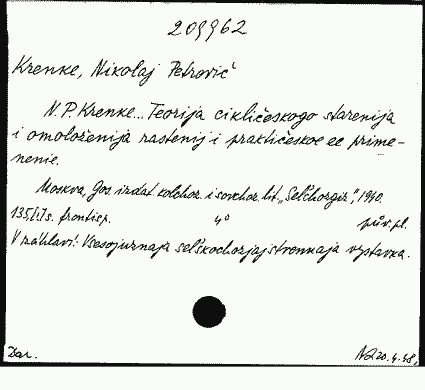 209962
Krenke, Nikolaj Petrovič
N. P. Krenke... Teorija cikličeskogo starenija
i omoloženija rastenij i praktičeskoe ee prime-
nenie.
Moskva, Gos. izdat. kolchoz. i sovchoz. lit. „Selchozgiz", 1940.
135,[1] s. frontisp. 4° pův. pl.
V záhlaví: Vsesojuznaja selskochozjajstvennaja vystavka.
Dar. 20.4.48,